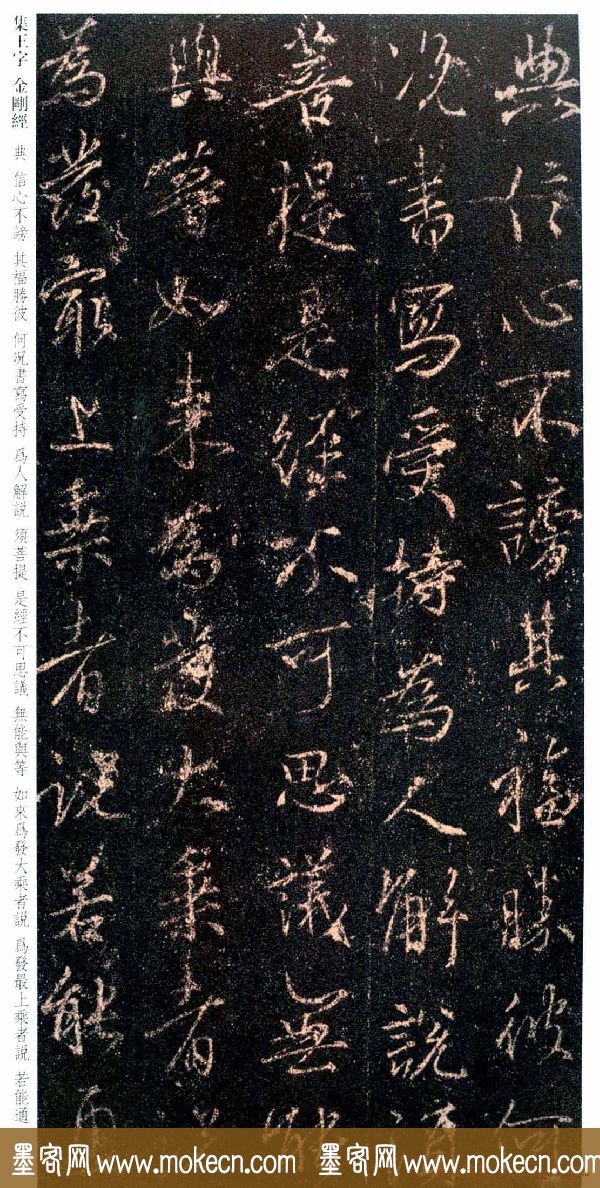 典信心不謗其福勝彼何
况書寫受持為人解說須
菩提是經不可思議無能
與等如来為發大乗者說
為發最上乗者說若能
集王字 金剛經 典 信心不謗 其福勝彼 何況書寫受持 爲人解説 須菩提 是經不可思議 無能與等 如來爲發大乘者説 爲發最上乘者説 若能通
墨客网 www.mokecn.com 墨客网 www.mokecn.com